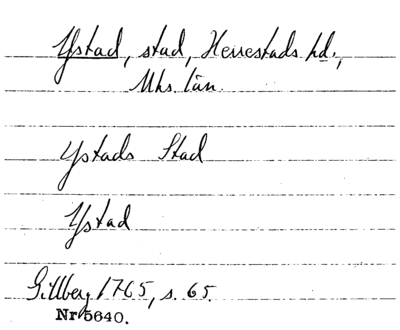 Ystad, stad, Herrestads hd.,
Mhs. län.
Ystads Stad
Ystad
Gillberg 1765, s. 65.
Nr 5640.